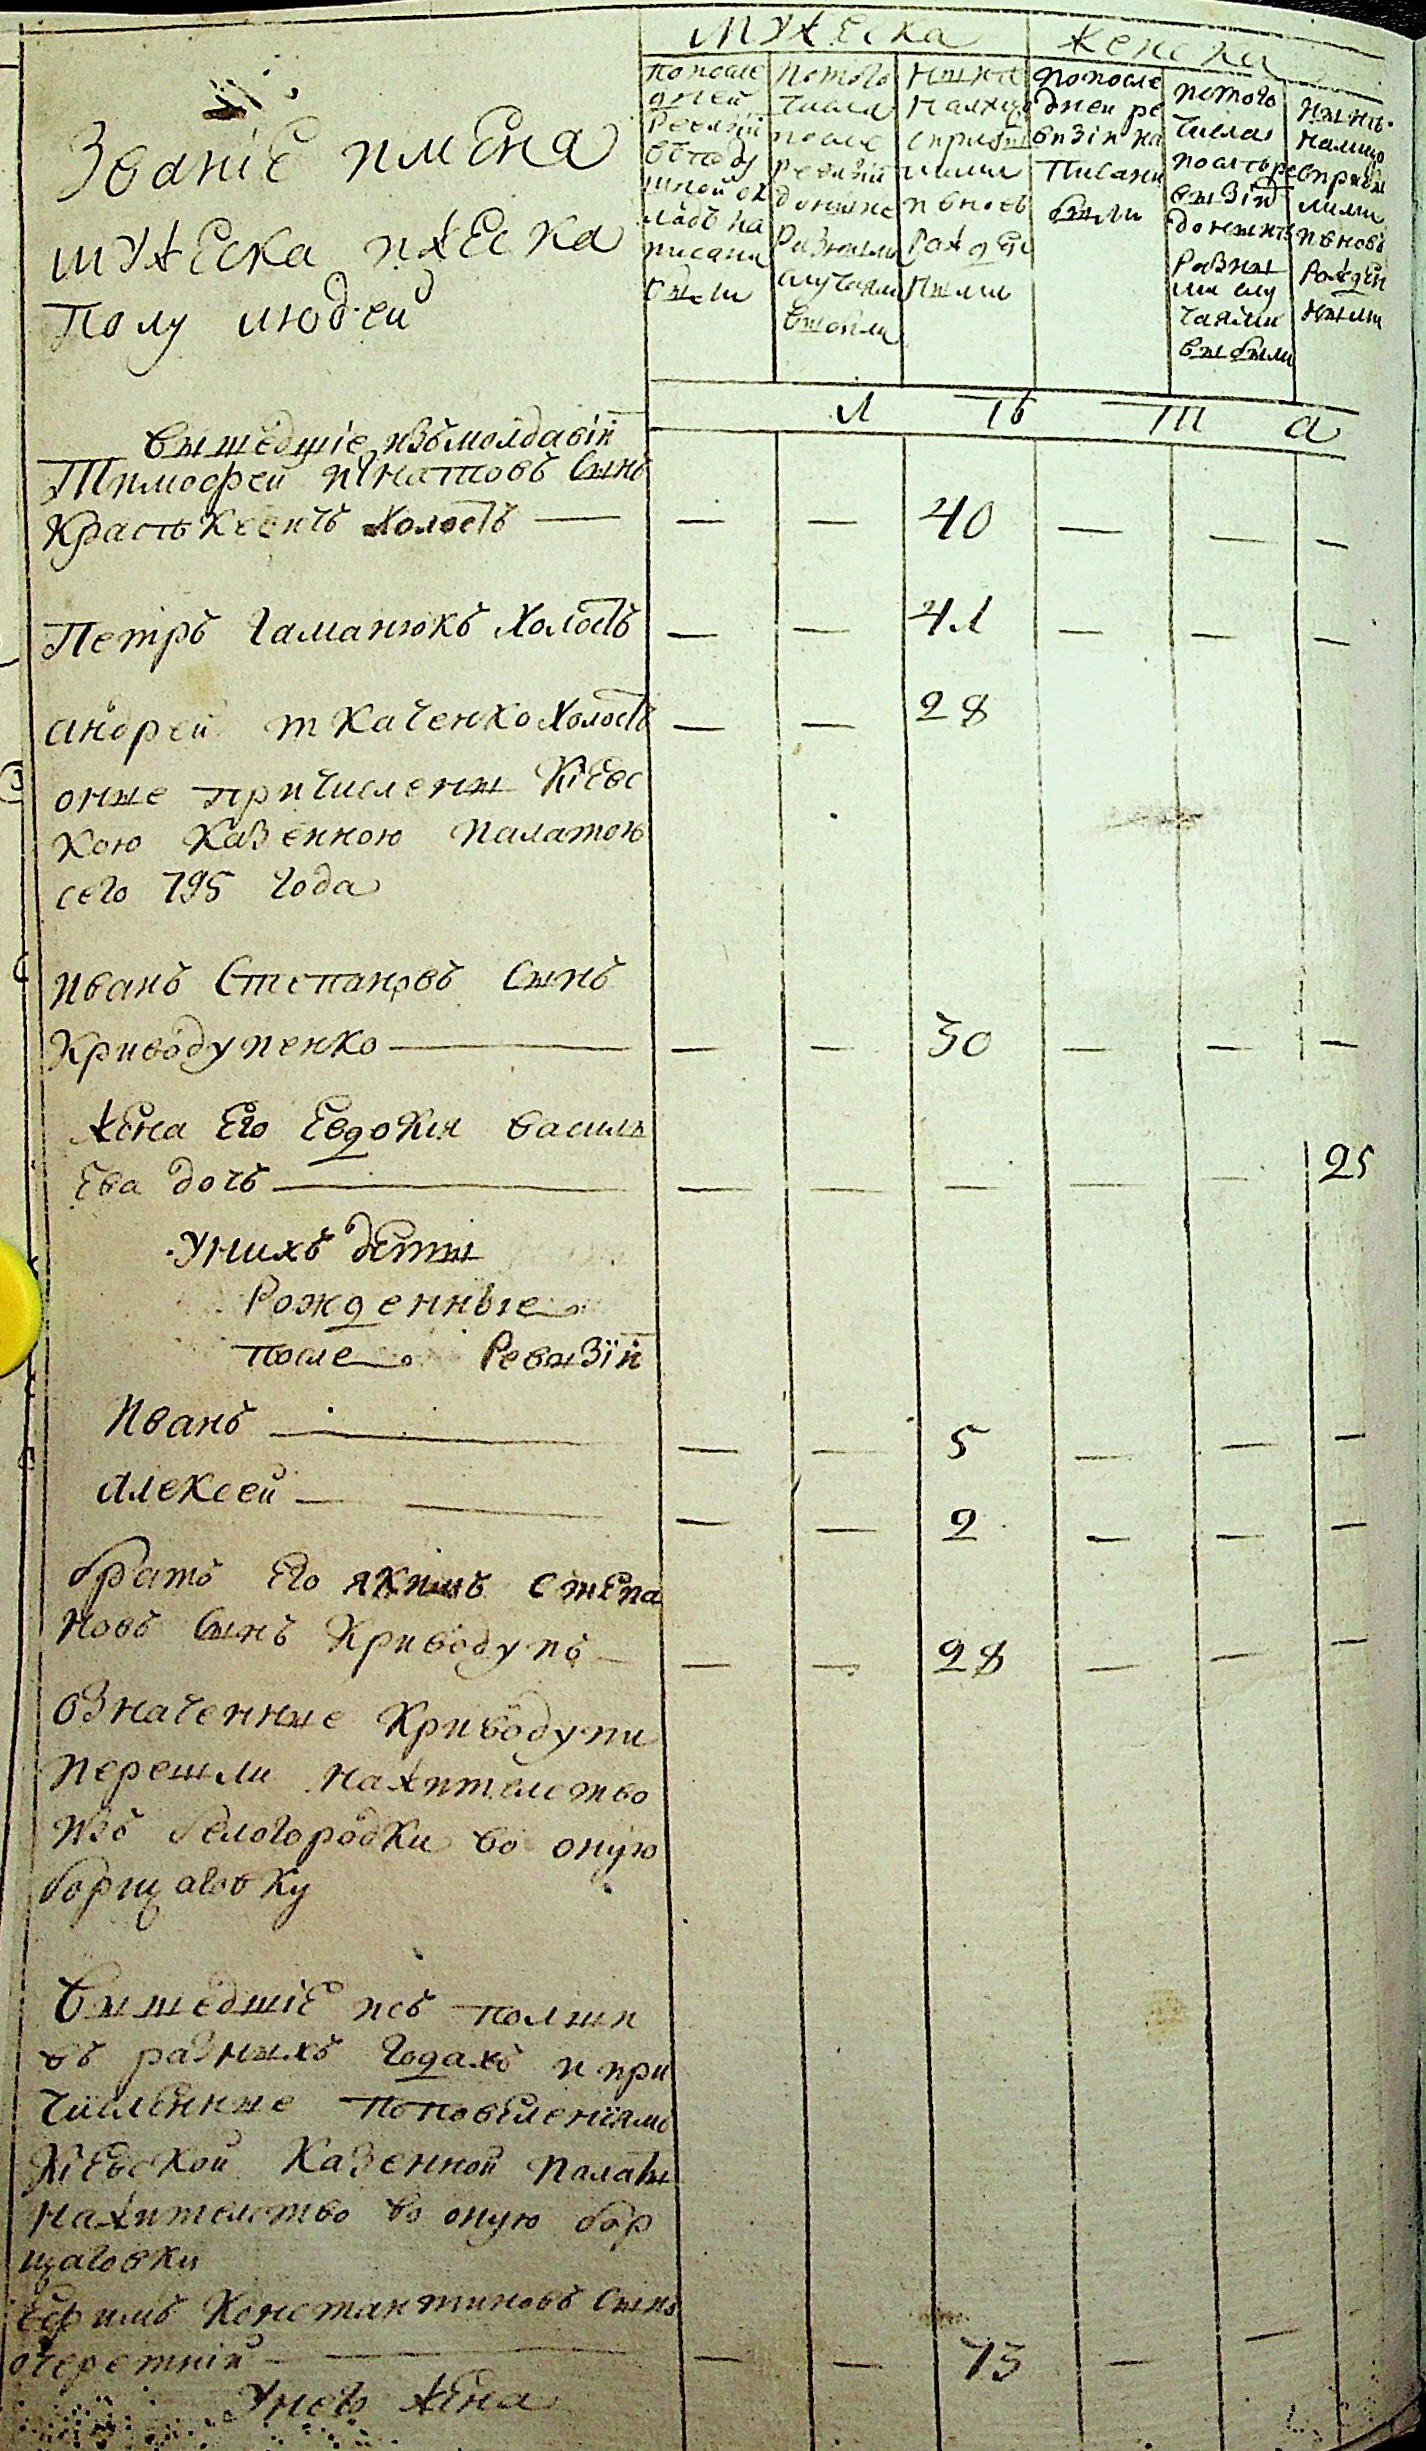 Званіе имена
мужеска иженска
полу людей
мужеска
женска
попосле
дней
Ревизіи
вподу
шной ок
ладъ на
писани
были
истого
числа
после
ревизіи
доныне
Разными
случаями
выбыли
ныне
налицо
сприбы
лыми
ивновь
Рожден
ными
попосле
дней ре
визіи на
писани
были
истого
числа
послѣре
визіи
донынѣ
Разны
ми слу
чаями
выбыли
нынѣ
налицо
сприбы
лими
ивновь
Рожден
ными
л ѣ т а
вышедшіе изъмолдавіи
Тимофей игнатовъ Сынъ
Холостъ — — — 40 — — —
Петръ гаманюкъ Холостъ — — 41 — — —
андрей ткаченко Холостъ — — 28
оные причислены Кіевс
кою Казенною палатою
сего 795 года
иванъ Степановъ Сынъ
Криводупенко — — — 30 — — —
жена Его Евдокия василь
Ева дочь — — — — — — 25
унихъ дети
Рожденные
после Ревизіи
Иванъ — — — 5 — — —
Алексей — — — 2 — — —
братъ Его якимъ степа
новъ Сынъ Криводупъ — — 28 — — —
означенные Криводупи
перешли нажителство
изъ белогородки во оную
борщаговку
Вышедшіе исъ полши
въ разныхъ годахъ и при
численные поповелениямъ
Кіевской Казенной палаты
нажителство во оную бор
щаговку
Ефимъ Константиновъ Сынъ
очеретній — — — 73 — —
унего жена